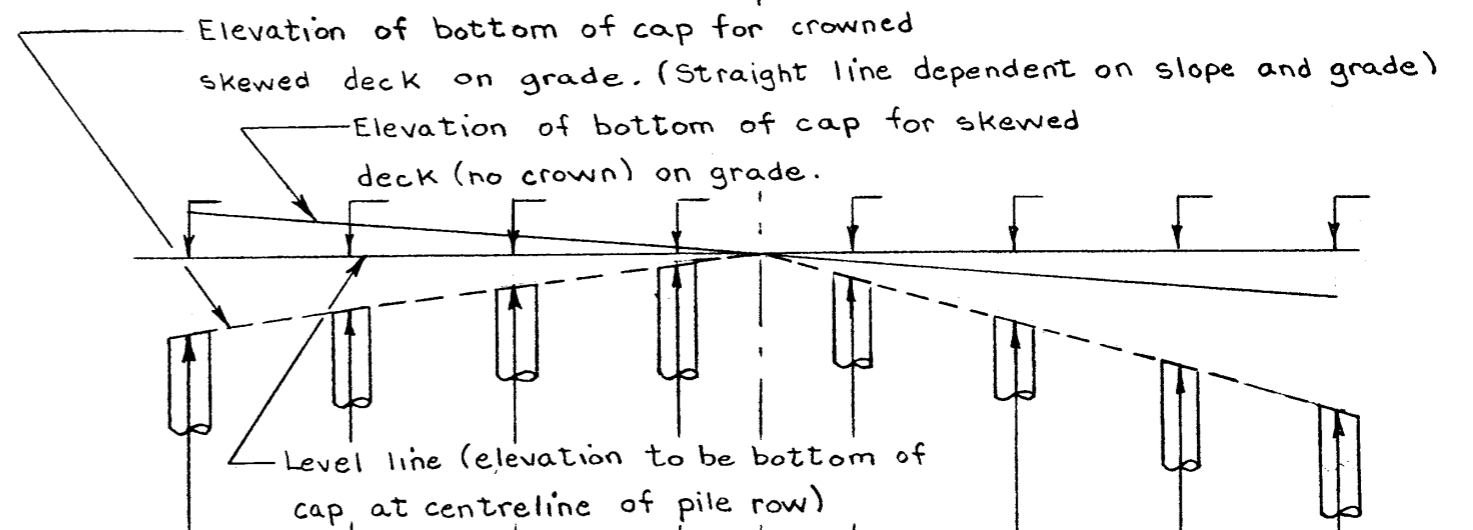 Elevation of bottom of cap for crowned
skewed deck on grade. (Straight line dependent on slope and grade)
Elevation of bottom of cap for skewed
deck (no crown) on grade.
Level line (elevation to be bottom of
cap at centreline of pile row)